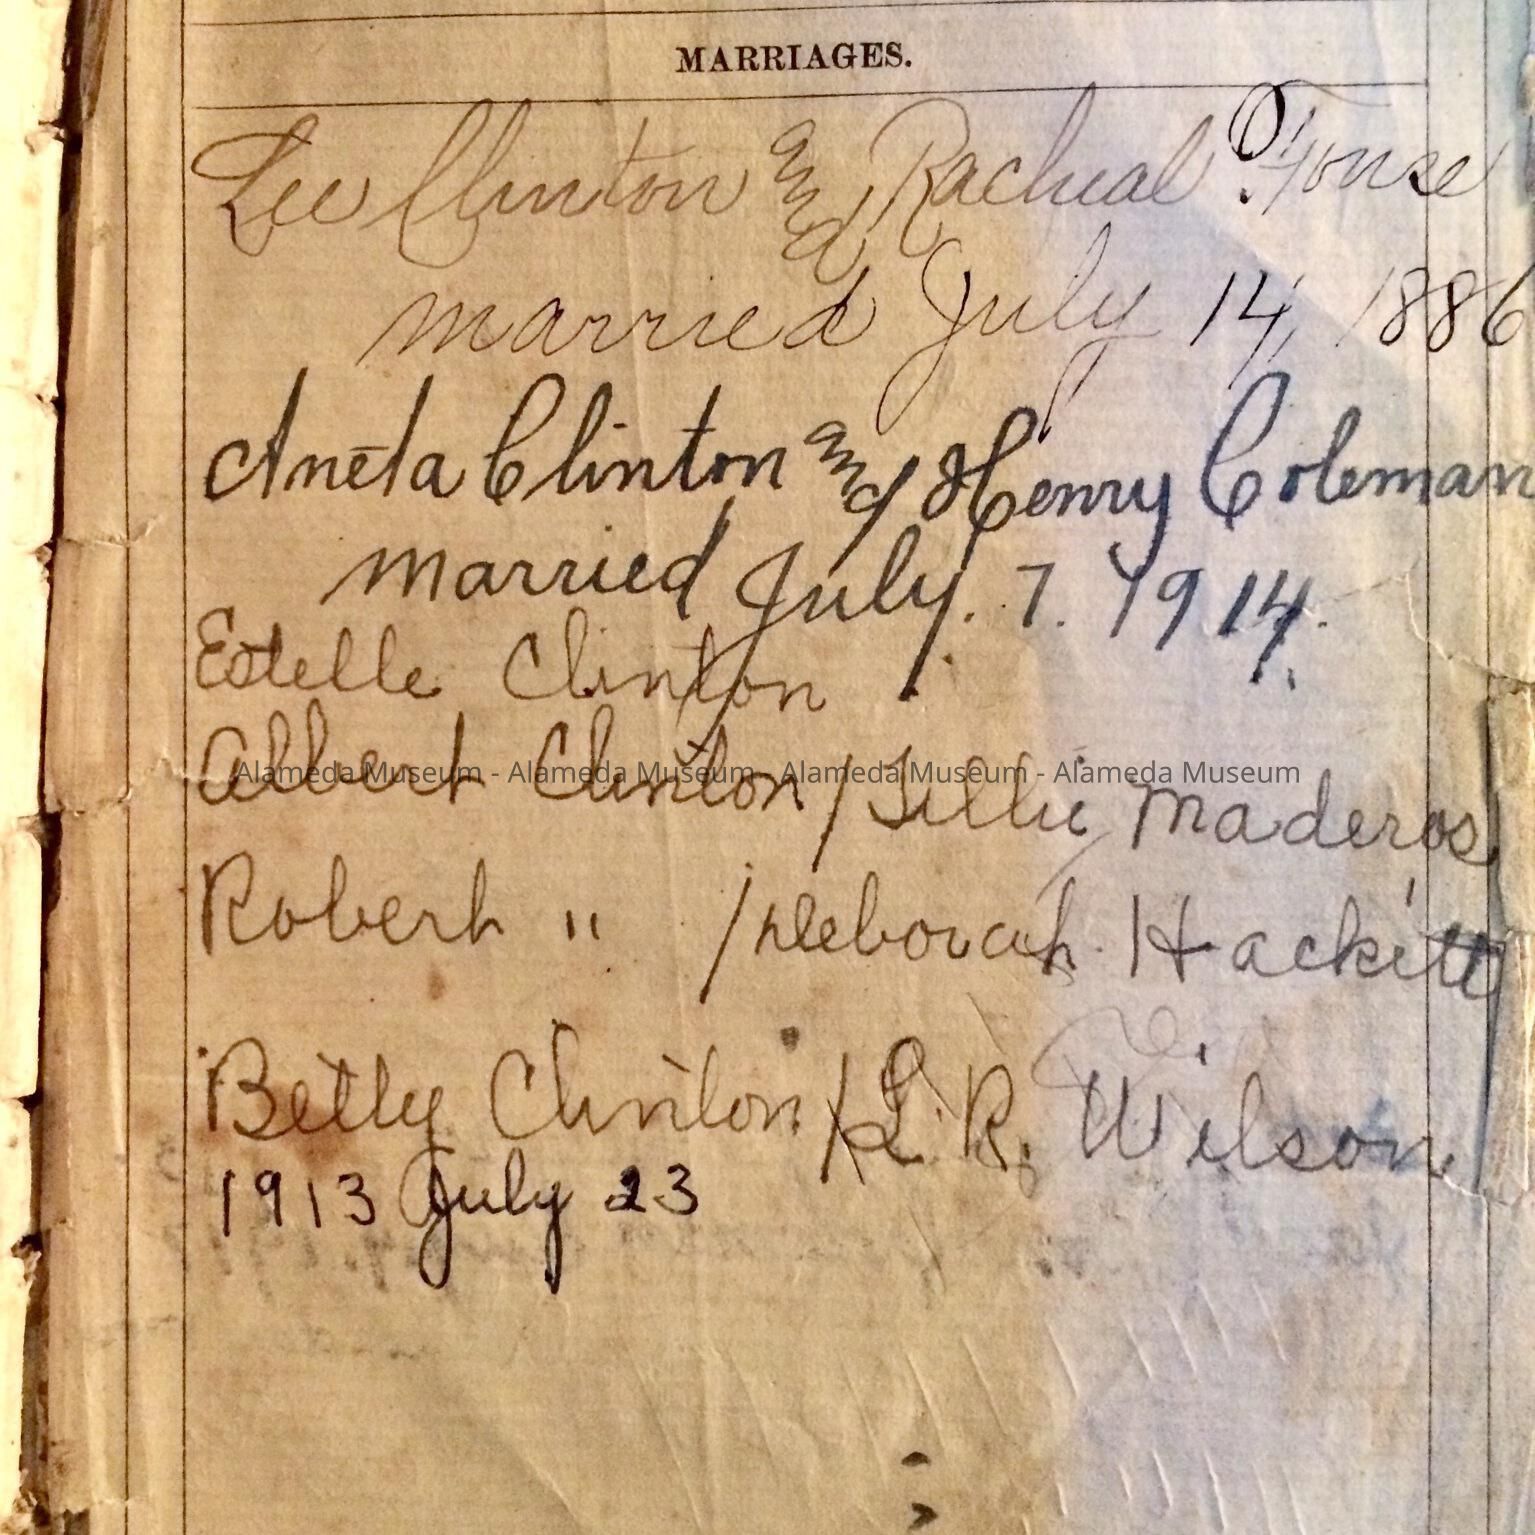 MARRIAGES.
Lee Clinton and Racheal Fouse
married July 14, 1886
Aneta Clinton and Henry Coleman
married July. 7. 1914.
Estelle Clinton
Albert Clinton / Tillie Maderos
Alameda Museum - Alameda Museum - Alameda Museum - Alameda Museum
Robert " / Deborah Hackitt
Betty Clinton / L. R. Wilson
1913 July 23